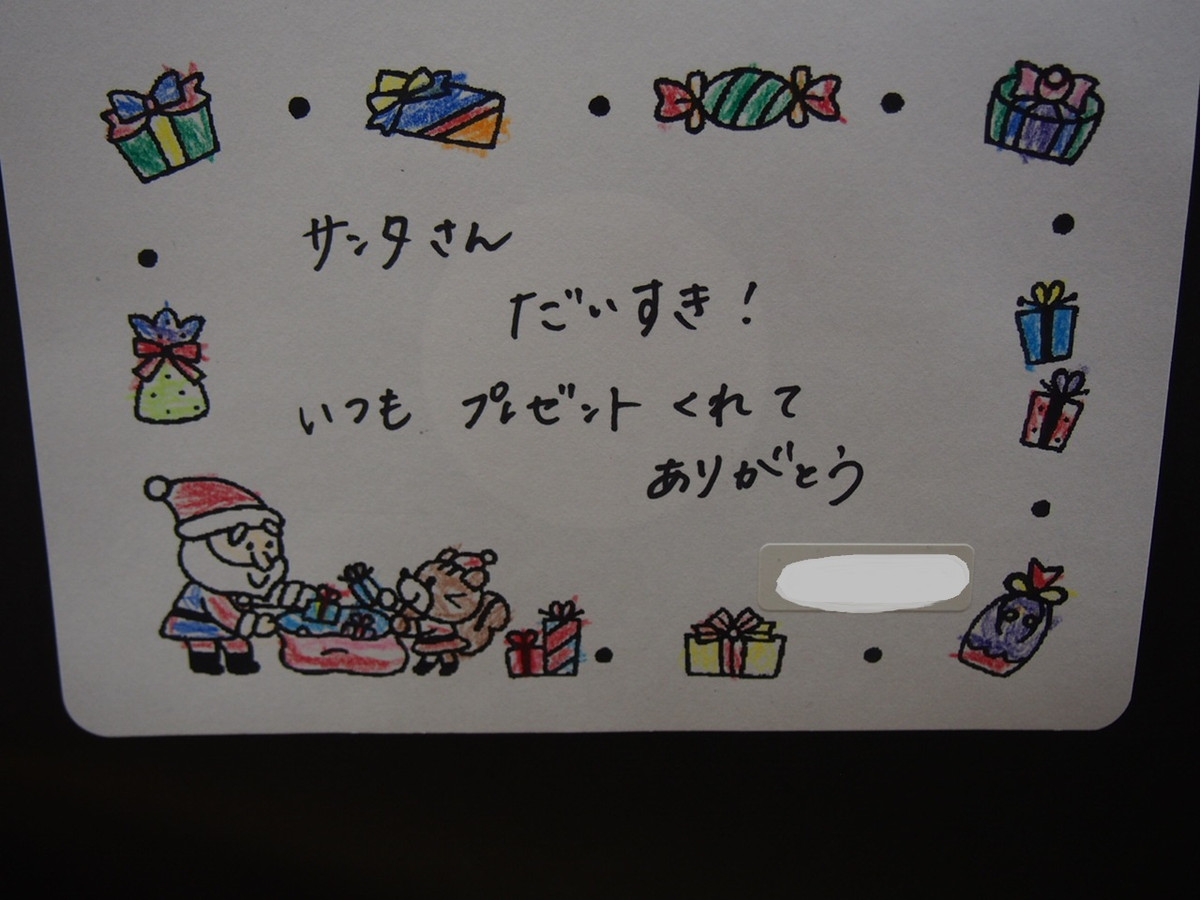 サンタさん
だいすき!
いつも プレゼント くれて
ありがとう